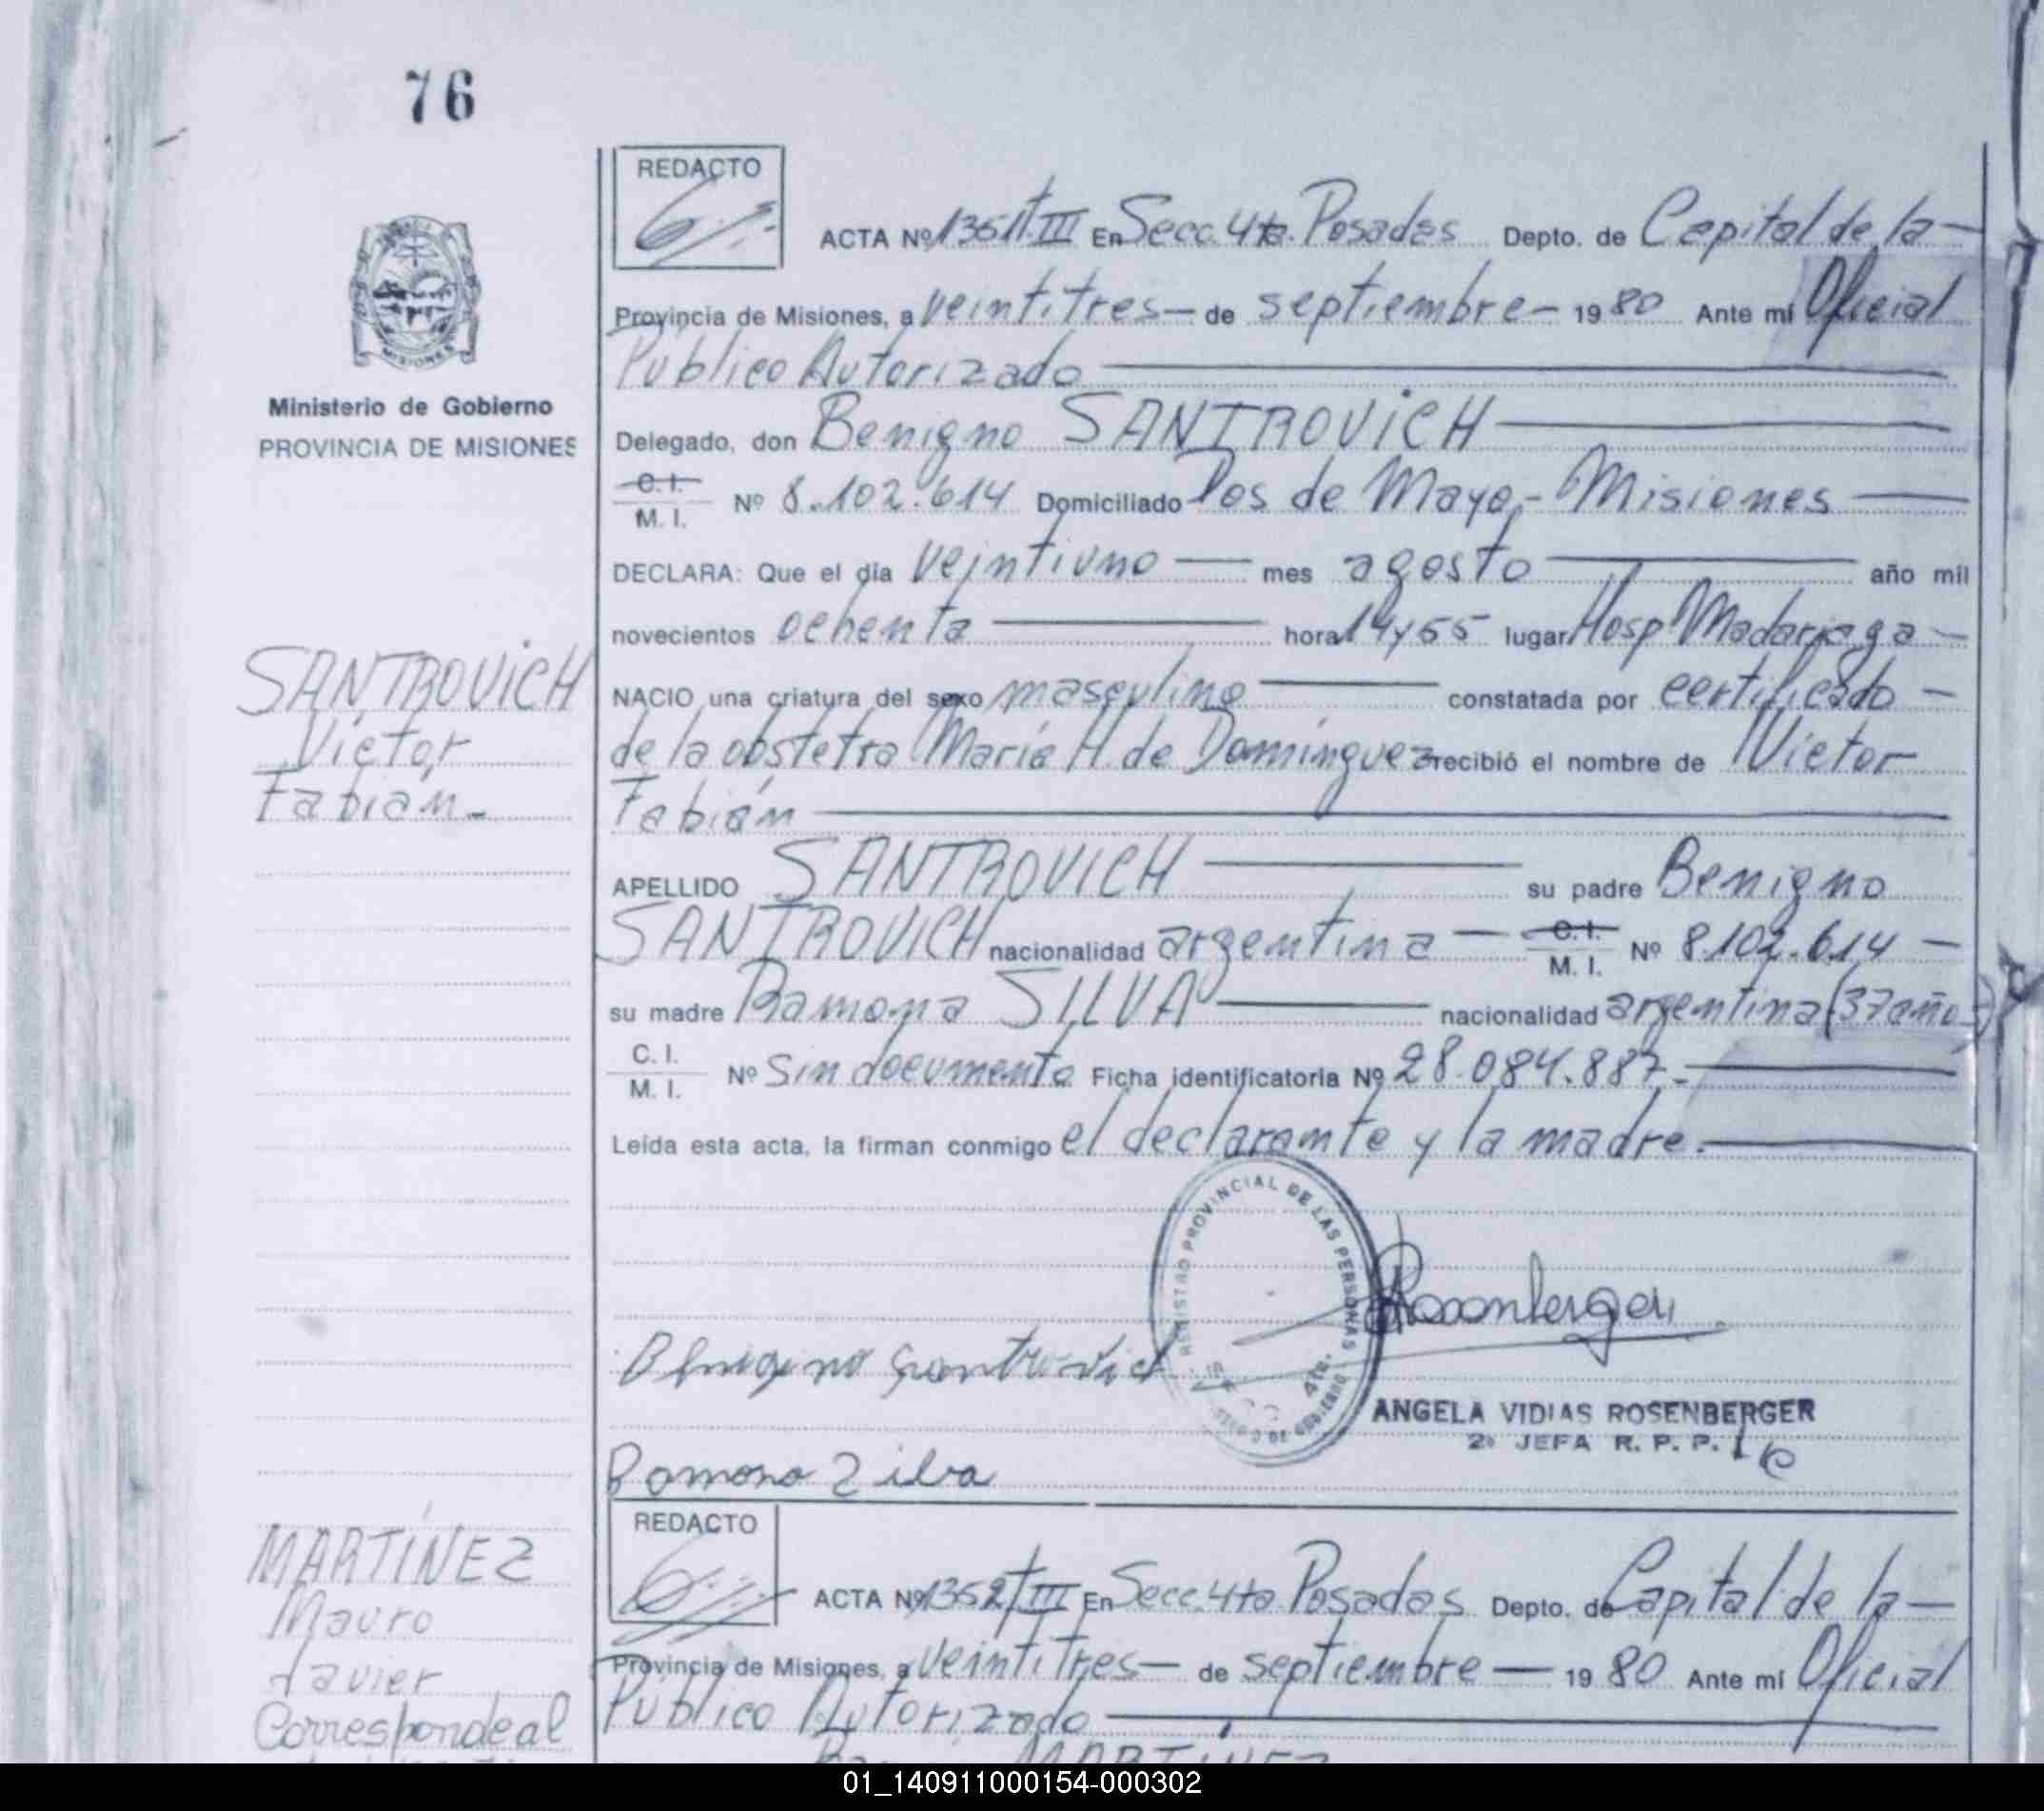 76
REDACTO
ACTA Nº 1351 T. III En Secc. 4ta. Posadas Depto. de Capital de la
Provincia de Misiones, a veintitres de septiembre 1980 Ante mi Oficial
Público Autorizado
Ministerio de Gobierno
PROVINCIA DE MISIONES
MISIONES
Delegado, don Benigno SANTROVICH
C. I.
M. I. Nº 8.102.614 Domiciliado Dos de Mayo,- Misiones
DECLARA: Que el día veintiuno mes agosto año mil
novecientos ochenta hora 14y55 lugar Hosp Madariaga
SANTROVICH
Víctor
Fabián.-
NACIO una criatura del sexo masculino constatada por certificado
de la obstetra María H. de Domínguez recibió el nombre de Víctor
Fabián
APELLIDO SANTROVICH su padre Benigno
SANTROVICH nacionalidad argentina C. I.
M. I. Nº 8.102.614
su madre Ramona SILVA nacionalidad argentina (37años)
C. I.
M. I. Nº Sin documento Ficha identificatoria Nº 28.084.887.-
Leída esta acta, la firman conmigo el declarante y la madre.
REGISTRO PROVINCIAL DE LAS PERSONAS
4ta.
Rosenberger
Benigno Santrovich
ANGELA VIDIAS ROSENBERGER
2ª JEFA R. P. P.
Ramona Zilva
REDACTO
MARTÍNEZ
Mauro
Javier
Corresponde al
ACTA Nº 1352 T. III En Secc. 4ta Posadas Depto. de Capital de la
Provincia de Misiones, a veintitres de septiembre 1980 Ante mi Oficial
Público Autorizado
MARTÍNEZ
01_140911000154-000302